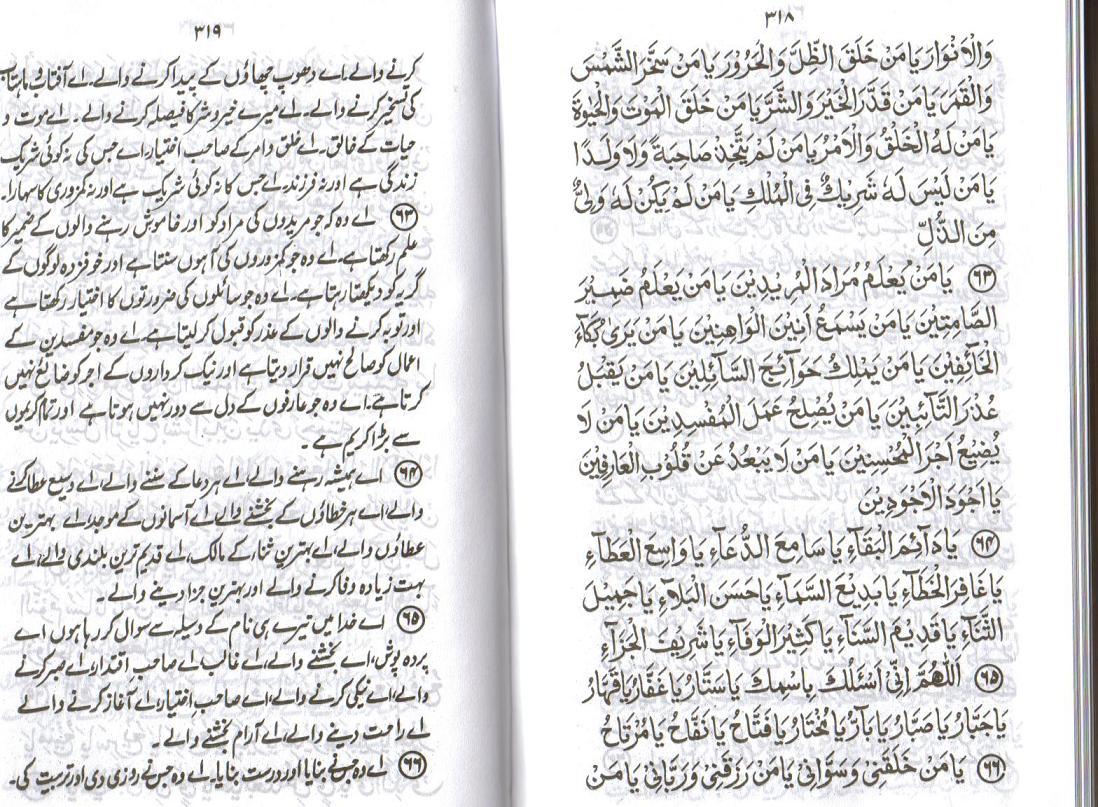 ۳۱۸
وَالْاَنْوَارِ يَا مَنْ خَلَقَ الظِّلَّ وَالْحَرُوْرَ يَا مَنْ سَخَّرَ الشَّمْسَ
وَالْقَمَرَ يَا مَنْ قَدَّرَ الْخَيْرَ وَالشَّرَّ يَا مَنْ خَلَقَ الْمَوْتَ وَالْحَيٰوةَ
يَا مَنْ لَهُ الْخَلْقُ وَالْاَمْرُ يَا مَنْ لَمْ يَتَّخِذْ صَاحِبَةً وَلَا وَلَدًا
يَا مَنْ لَيْسَ لَهٗ شَرِيْكٌ فِى الْمُلْكِ يَا مَنْ لَمْ يَكُنْ لَهٗ وَلِىٌّ
مِنَ الذُّلِّ
۶۳ يَا مَنْ يَعْلَمُ مُرَادَ الْمُرِيْدِيْنَ يَا مَنْ يَعْلَمُ ضَمِيْرَ
الصَّامِتِيْنَ يَا مَنْ يَسْمَعُ اَنِيْنَ الْوَاهِنِيْنَ يَا مَنْ يَرٰى بُكَآءَ
الْخَآئِفِيْنَ يَا مَنْ يَمْلِكُ حَوَآئِجَ السَّآئِلِيْنَ يَا مَنْ يَقْبَلُ
عُذْرَ التَّآئِبِيْنَ يَا مَنْ لَا يُصْلِحُ عَمَلَ الْمُفْسِدِيْنَ يَا مَنْ لَا
يُضِيْعُ اَجْرَ الْمُحْسِنِيْنَ يَا مَنْ لَا يَبْعُدُ عَنْ قُلُوْبِ الْعَارِفِيْنَ
يَا اَجْوَدَ الْاَجْوَدِيْنَ
۶۴ يَا دَآئِمَ الْبَقَآءِ يَا سَامِعَ الدُّعَآءِ يَا وَاسِعَ الْعَطَآءِ
يَا غَافِرَ الْخَطَآءِ يَا بَدِيْعَ السَّمَآءِ يَا حَسَنَ الْبَلَآءِ يَا جَمِيْلَ
الثَّنَآءِ يَا قَدِيْمَ السَّنَآءِ يَا كَثِيْرَ الْوَفَآءِ يَا شَرِيْفَ الْجَزَآءِ
۶۵ اَللّٰهُمَّ اِنِّىْ اَسْئَلُكَ بِاسْمِكَ يَا سَتَّارُ يَا غَفَّارُ يَا قَهَّارُ
يَا جَبَّارُ يَا صَبَّارُ يَا بَآرُّ يَا مُخْتَارُ يَا فَتَّاحُ يَا نَفَّاحُ يَا مُرْتَاحُ
۶۶ يَا مَنْ خَلَقَنِىْ وَسَوَّانِىْ يَا مَنْ رَزَقَنِىْ وَرَبَّانِىْ يَا مَنْ
۳۱۹
کرنے والے۔ اے دھوپ چھاؤں کے پیدا کرنے والے۔ اے آفتاب و ماہتاب
کی تسخیر کرنے والے۔ اے میرے خیر و شر کا فیصلہ کرنے والے۔ اے موت و
حیات کے خالق۔ اے خلق و امر کے صاحب اختیار، اے جس کی نہ کوئی شریک
زندگی ہے اور نہ فرزند، اے جس کا نہ کوئی شریک ہے اور نہ کمزوری کا سہارا۔
۶۳ اے وہ کہ جو مریدوں کی مراد کو اور خاموش رہنے والوں کے ضمیر کا
علم رکھتا ہے۔ اے وہ جو کمزوروں کی آہوں سنتا ہے اور خوفزدہ لوگوں کے
گریہ کو دیکھتا رہتا ہے۔ اے وہ جو سائلوں کی ضرورتوں کا اختیار رکھتا ہے
اور توبہ کرنے والوں کے عذر کو قبول کر لیتا ہے۔ اے وہ جو مفسدین کے
اعمال کو صالح نہیں قرار دیتا ہے اور نیک کرداروں کے اجر کو ضائع نہیں
کرتا ہے۔ اے وہ جو عارفوں کے دل سے دور نہیں ہوتا ہے اور تمام کریموں
سے بڑا کریم ہے۔
۶۴ اے ہمیشہ رہنے والے، اے ہر دعا کے سننے والے، اے وسیع عطا کرنے
والے، اے ہر خطاؤں کے بخشنے والے اے آسمانوں کے موجد، اے بہترین
عطاؤں والے، اے بہترین ثناء کے مالک، اے قدیم ترین بلندی والے، اے
بہت زیادہ وفا کرنے والے اور بہترین جزا دینے والے۔
۶۵ اے خدا میں تیرے ہی نام کے وسیلہ سے سوال کر رہا ہوں اے
پردہ پوش، اے بخشنے والے، اے غالب اے صاحب اقتدار، اے صبر کرنے
والے، اے نیکی کرنے والے، اے صاحب اختیار، اے آغاز کرنے والے
اے راحت دینے والے، اے آرام بخشنے والے۔
۶۶ اے وہ جس نے بنایا اور درست بنایا۔ اے وہ جس نے روزی دی اور تربیت کی۔